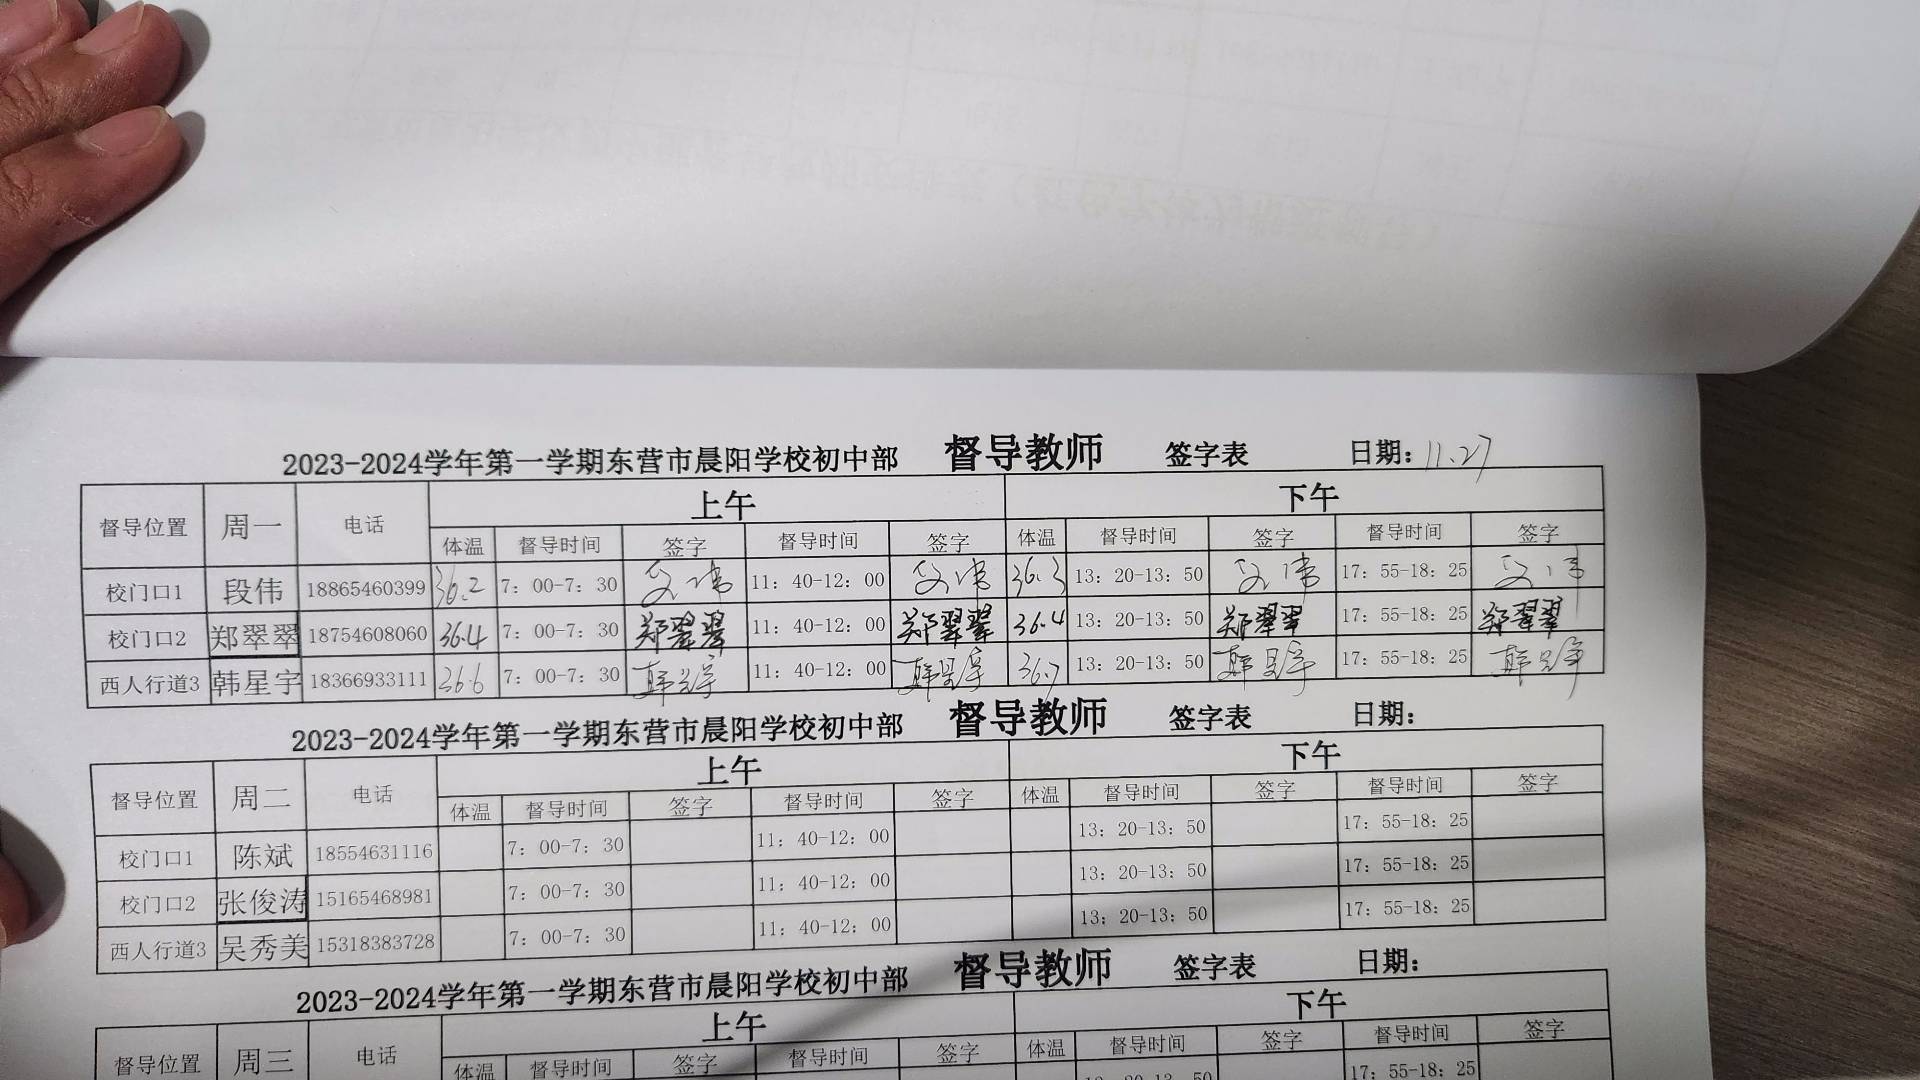 2023-2024学年第一学期东营市晨阳学校初中部 督导教师 签字表 日期：11.27
督导位置 周一 电话 上午 下午
体温 督导时间 签字 督导时间 签字 体温 督导时间 签字 督导时间 签字
校门口1 段伟 18865460399 36.2 7：00-7：30 段伟 11：40-12：00 段伟 36.3 13：20-13：50 段伟 17：55-18：25 段伟
校门口2 郑翠翠 18754608060 36.4 7：00-7：30 郑翠翠 11：40-12：00 郑翠翠 36.4 13：20-13：50 郑翠翠 17：55-18：25 郑翠翠
西人行道3 韩星宇 18366933111 36.6 7：00-7：30 韩星宇 11：40-12：00 韩星宇 36.7 13：20-13：50 韩星宇 17：55-18：25 韩星宇
2023-2024学年第一学期东营市晨阳学校初中部 督导教师 签字表 日期：
督导位置 周二 电话 上午 下午
体温 督导时间 签字 督导时间 签字 体温 督导时间 签字 督导时间 签字
校门口1 陈斌 18554631116 7：00-7：30 11：40-12：00 13：20-13：50 17：55-18：25
校门口2 张俊涛 15165468981 7：00-7：30 11：40-12：00 13：20-13：50 17：55-18：25
西人行道3 吴秀美 15318383728 7：00-7：30 11：40-12：00 13：20-13：50 17：55-18：25
2023-2024学年第一学期东营市晨阳学校初中部 督导教师 签字表 日期：
督导位置 周三 电话 上午 下午
体温 督导时间 签字 督导时间 签字 体温 督导时间 签字 督导时间 签字
17：55-18：25